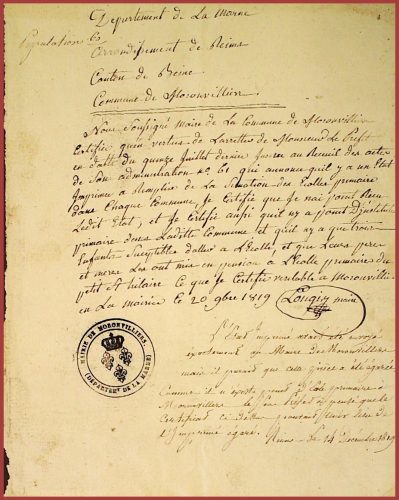 Département de La Marne
Population 60
Arrondissement de Reims
Canton de Beine
Commune de Moronvillier
Nous Soussigné Maire de La Commune de Moronvillier
Certifie quen vertus de Larretté de Monsieur Le Preft
en datte du quinze Juillet dernier Inseree au Recueil des actes
de Son administration no 61 qui annonce quil y a un Etat
Imprimé a Remplir de La Situation des Ecolles primaire
dans Chaque Commune, Je Certifie que Je nai point Reçu
Ledit Etat, et Je Certifie aussi quil ny a point Dinstitu
primaire dans Laditte Commune et quil ny a que trois
Enfants Suceptible daller a LEcolle, et que Leurs pere
et mere Les ont mis en pension a LEcolle primaire du
petit St hilaire Ce que Je Certifie veritable a Moronvilli
en La mairie Le 20 9bre 1819 Lougin maire
MAIRIE DE MORONVILLIERS
(DEPARTEMt DE LA MARNE)
L'Etat imprimé avait été envoyé
exactement au Maire de Moronvilliers
mais il paraît que cette pièce a été égarée
Comme il n'existe point d'Ecole primaire à
Moronvilliers le Sr Préfet a pensé que le
Certificat ci-dessus pourrait tenir lieu de
L'Imprimé égaré. Reims le 14 Decembre 1819